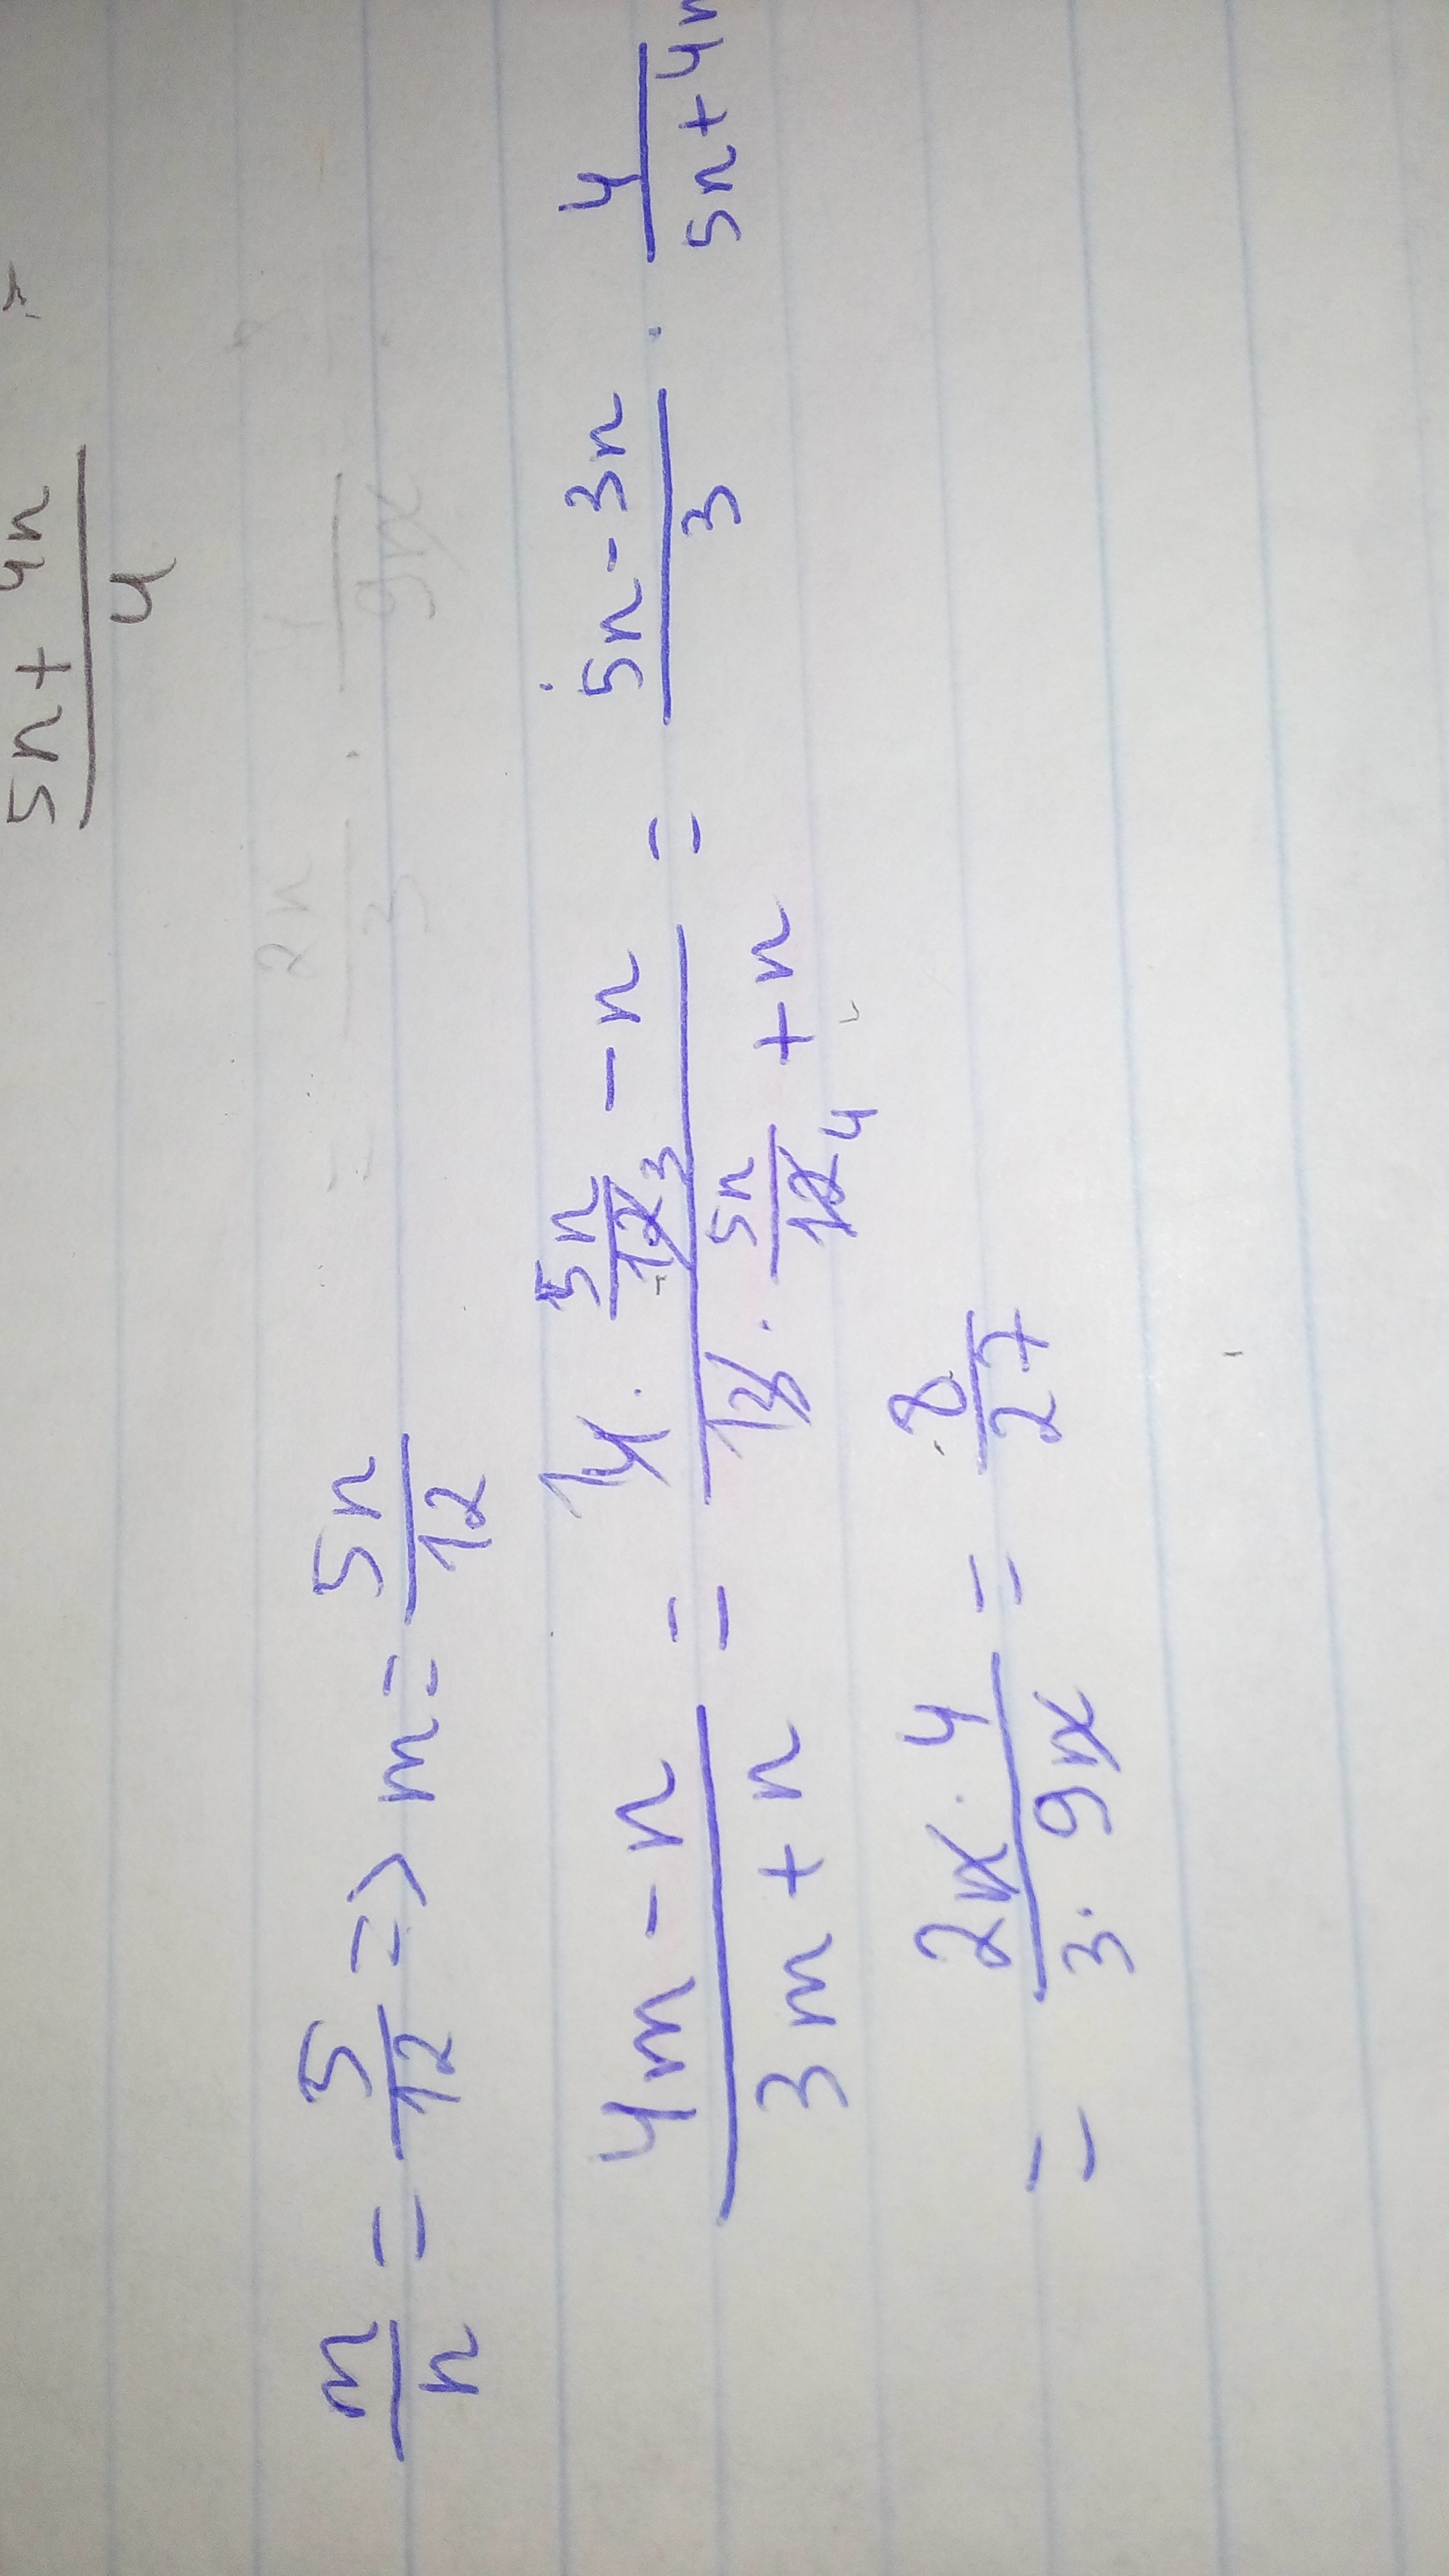 (5n + 4n)/4
= 2n/3 · /9n
m/n = 5/12 => m = 5n/12
(4m - n)/(3m + n) = (4 · 5n/12 3 - n)/(3 · 5n/12 4 + n) = (5n - 3n)/3 · 4/(5n + 4n
= (2n · 4)/(3 · 9n) = 8/27